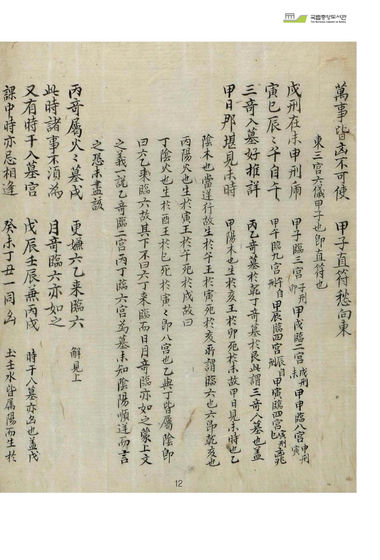 국립중앙도서관
萬事皆凶不可使 甲子直符愁向東
東三宮六儀甲子也即直符也
甲子臨三宮 子刑卯 甲戌臨二宮 戌刑未 甲申臨八宮 申刑寅
戊刑在未申刑虎
寅巳辰辰午自午 甲午臨九宮 午自刑 甲辰臨四宮 辰自刑 甲寅臨四宮 寅刑巳
三奇入墓好推詳 丙乙奇墓於乾丁奇墓於艮此謂三奇入墓也蓋
甲日那堪見未時 甲陽木也生於亥王於卯死於未故甲日見未時也乙
陰木也當逆行故生於午王於寅死於亥所謂臨六也六即乾亥也
丙陽火也生於寅王於午死於戌故曰
丁陰火也生於酉王於巳死於寅寅即八宮也乙與丁皆屬陰即
曰六乙來臨六故其下不曰六丁來臨而曰月奇臨亦如之蒙上文
之義一說乙奇臨二宮丙丁臨六宮為墓未知陰陽順逆而言
之恐未盡該
丙奇屬火火墓戌 更嫌六乙來臨六 解見上
此時諸事不須為 月奇臨六亦如之
又有時干入墓宮 戊辰壬辰兼丙戌 時干入墓亦凶也蓋戌
課中時亦忌相逢 癸未丁丑一同凶 土壬水皆屬陽而生於
12